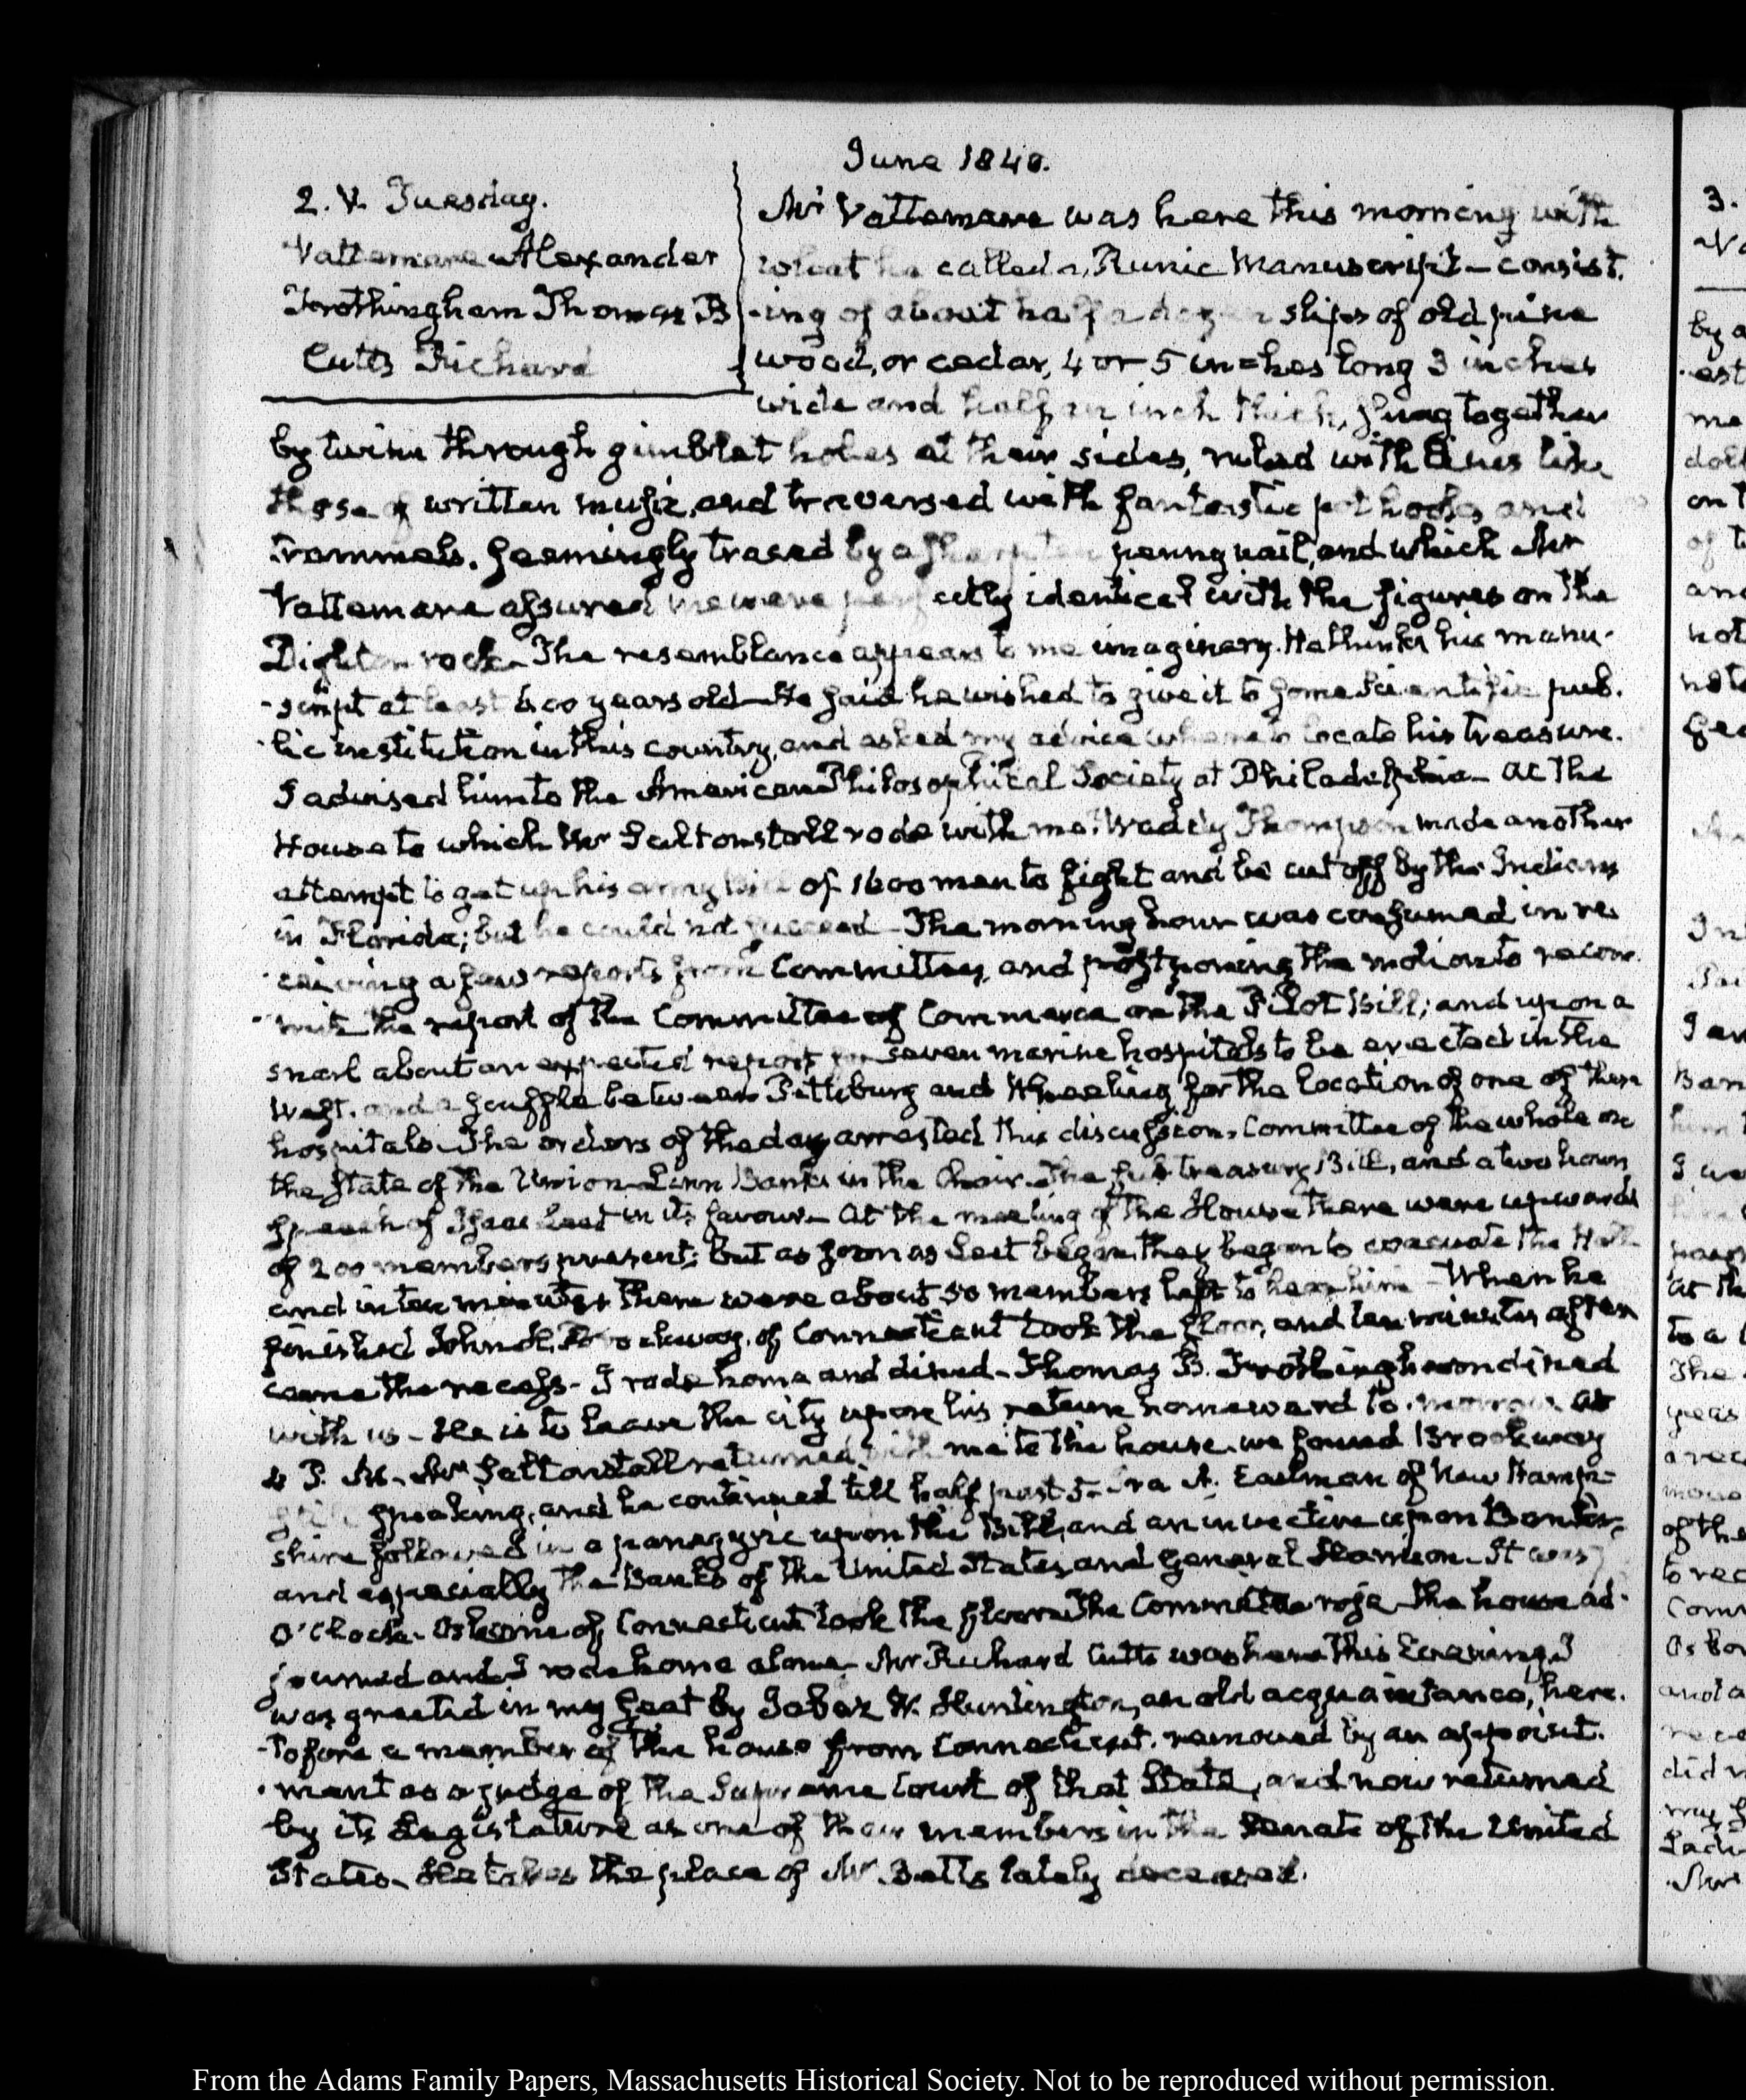 June 1840.
2. V. Tuesday.
Vattemare Alexander
Frothingham Thomas B
Cutts Richard
Mr Vattemare was here this morning with
what he called a Runic Manuscript – consist.
-ing of about half a dozen slips of old pine
wood, or cedar, 4 or 5 inches long 3 inches
wide and half an inch thick, strung together
by twine through gimblet holes at their sides, ruled with lines like
those of written music, and traversed with fantastic pothooks and
trammels, seemingly traced by a sharp ten penny nail, and which Mr
Vattemare assured me were perfectly identical with the figures on the
Dighton rock – The resemblance appears to me imaginary. He thinks his manu-
-script at least 600 years old – He said he wished to give it to some Scientific pub.
-lic institution in this country, and asked my advice where to locate his treasure.
I advised him to the American Philosophical Society at Philadelphia – At the
House to which Mr Saltonstall rode with me. Waddy Thompson made another
attempt to get up his army bill of 1600 men to fight and be cut off by the Indians
in Florida; but he could not succeed – The morning hour was consumed in re-
-ceiving a few reports from Committees, and postponing the motion to recom-
-mit the report of the Committee of Commerce on the Pilot Bill; and upon a
snarl about an expected report for seven marine hospitals to be erected in the
West, and a scuffle between Pittsburg and Wheeling for the location of one of these
hospitals – The orders of the day arrested this discussion. Committee of the whole on
the State of the Union – Linn Banks in the Chair – The sub treasury Bill, and a two hours
speech of Isaac Leet in its favour – At the meeting of the House there were upwards
of 200 members present; but as soon as Leet began, they began to evacuate the Hall
and in ten minutes there were about 50 members left to hear him – When he
finished John H. Brockway, of Connecticut took the floor, and ten minutes after
came the recess – I rode home and dined – Thomas B. Frothingham dined
with us – He is to leave the city upon his return homeward to-morrow. At
4 P. M. – Mr Saltonstall returned with me to the house. we found Brockway
still speaking, and he continued till half past 5 – Ira A. Eastman of New Hamp-
shire followed in a panegyric upon the Bill, and an invective upon Banks,
and especially the Banks of the United States, and General Harrison – It was 7
O'Clock – Osborne of Connecticut took the floor – The Committee rose – The house ad-
journed and I rode home alone – Mr Richard Cutts was here this Evening. I
was greeted in my seat by Jabez W. Huntington, an old acquaintance, here.
-tofore a member of the house from Connecticut. removed by an appoint.
-ment as a judge of the Supreme Court of that State, and now returned
by its Legislature as one of their members in the Senate of the United
States – He takes the place of Mr. Betts lately deceased.
From the Adams Family Papers, Massachusetts Historical Society. Not to be reproduced without permission.